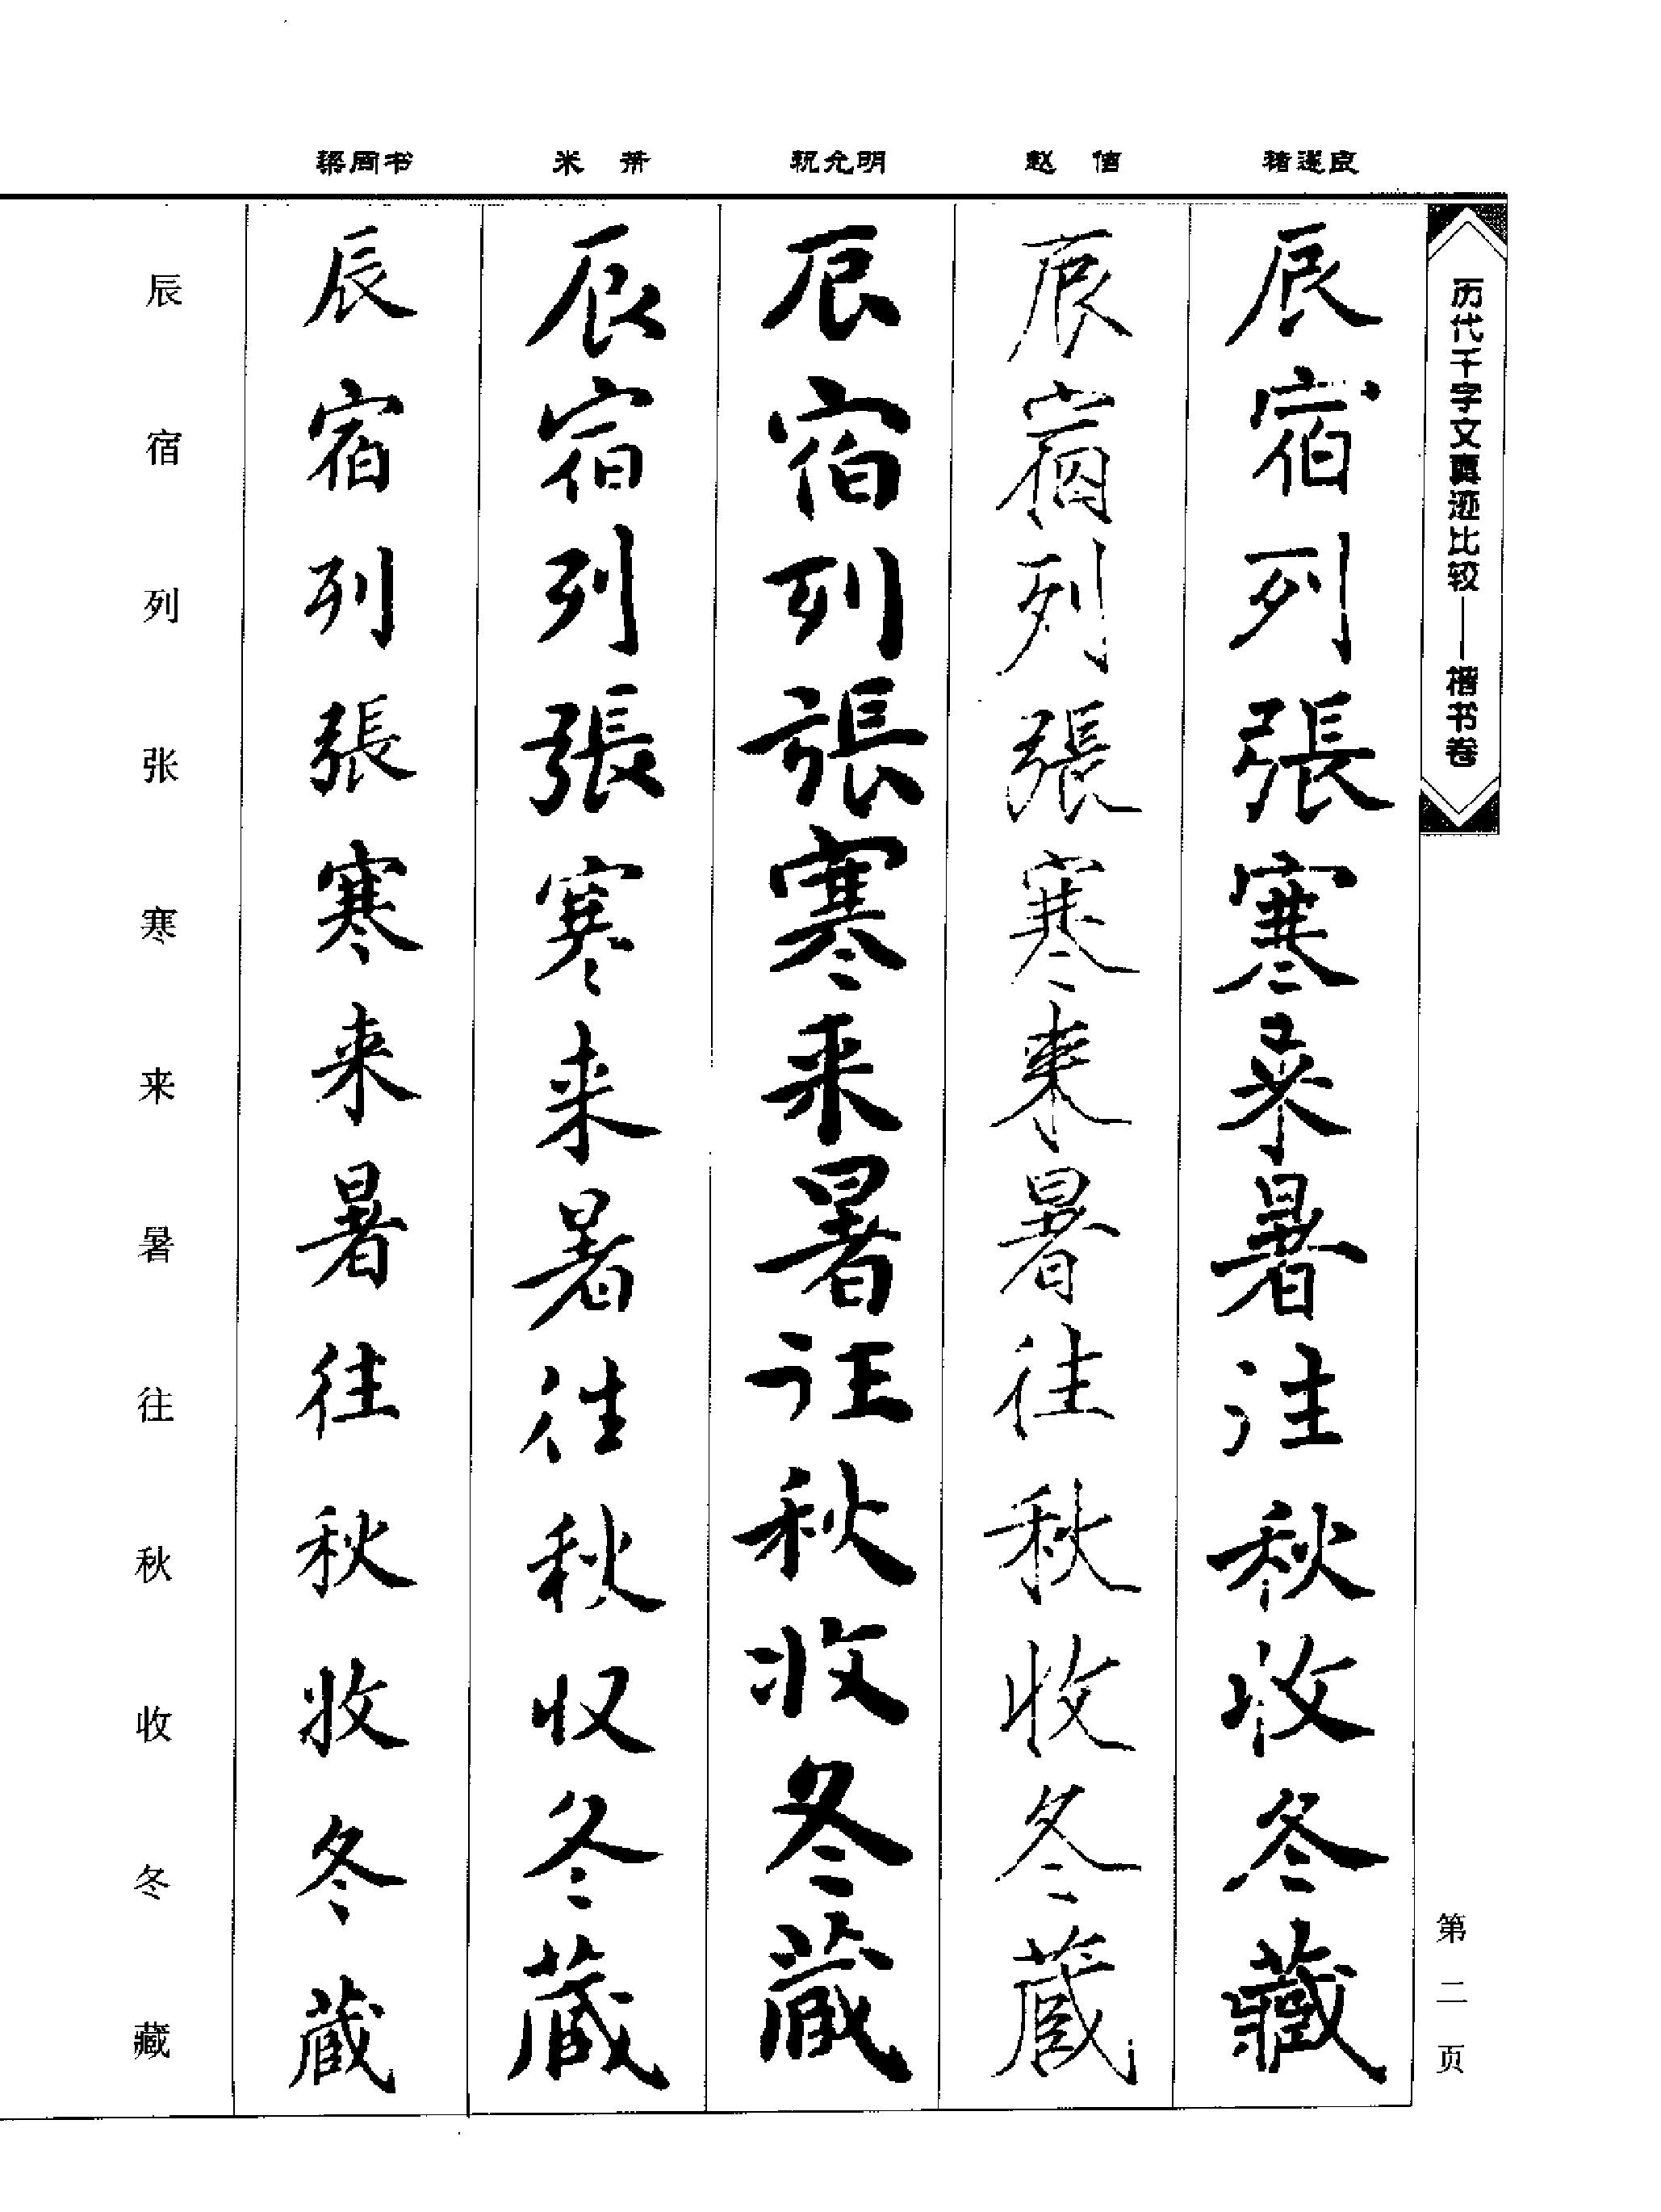 历代千字文真迹比较——楷书卷
第二页
褚遂良
辰宿列張寒来暑往秋收冬藏
赵佶
辰宿列張寒来暑往秋收冬蔵
祝允明
辰宿列張寒来暑往秋收冬蔵
米芾
辰宿列張寒来暑往秋収冬蔵
梁同书
辰宿列張寒来暑往秋收冬蔵
辰宿列张寒来暑往秋收冬藏